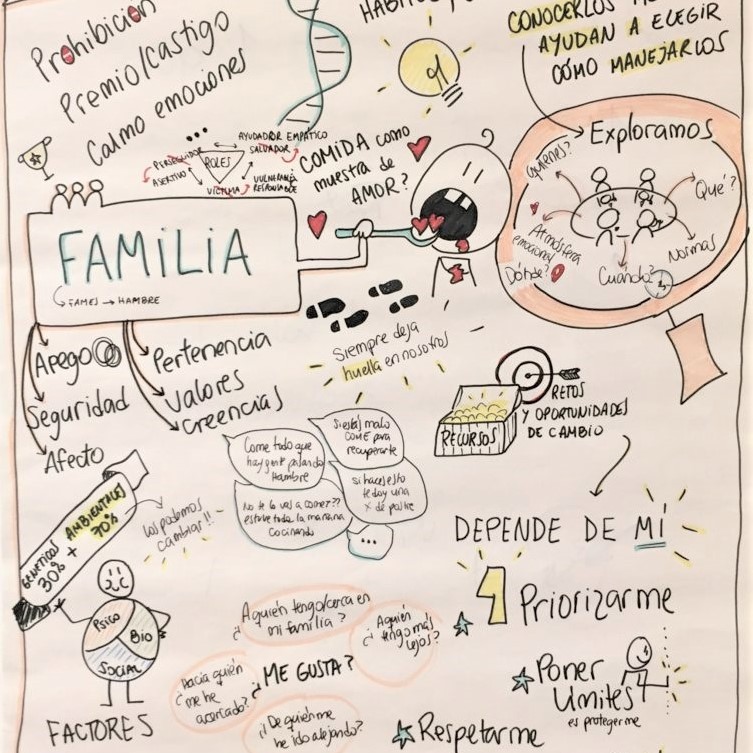 Prohibición
Premio/Castigo
Calmo emociones
...
HÁBITOS
CONOCERLOS
AYUDAN A ELEGIR
CÓMO MANEJARLOS
AYUDADOR EMPÁTICO
PERSEGUIDOR
SALVADOR
ROLES
ASERTIVO
VÍCTIMA
VULNERABLE
RESPONSABLE
COMIDA como
muestra de
AMOR?
Exploramos
Quienes?
Qué?
Atmósfera
emocional
Normas
Dónde?
Cuándo?
FAMILIA
FAMES → HAMBRE
Apego
Seguridad
Afecto
Pertenencia
Valores
Creencias
Siempre deja
huella en nosotros
RECURSOS
RETOS
Y OPORTUNIDADES
DE CAMBIO
Come todo que
hay gente pasando
Hambre
Si estás malo
COME para
recuperarte
No te lo vas a comer??
estuve toda la mañana
cocinando
si haces esto
te doy una
x de postre
...
GENÉTICOS
30%
+
AMBIENTALES
70%
Los podemos
cambiar!!
Psico
Bio
SOCIAL
FACTORES
DEPENDE DE MÍ
1 Priorizarme
Poner
Límites
es protegerme
Respetarme
¿A quién tengo/cerca en
mi familia?
¿A quién
tengo más
lejos?
¿ME GUSTA?
Hacia quién
¿me he
acercado?
¿De quién me
he ido alejando?